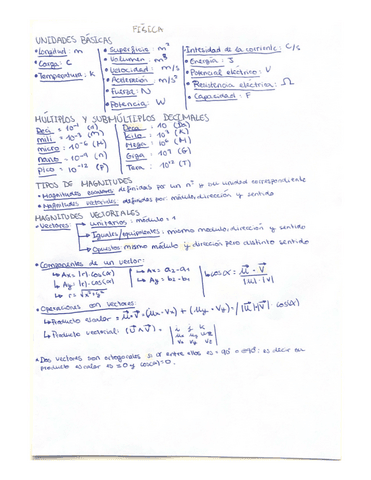 FÍSICA
UNIDADES BÁSICAS
• Longitud: m
• Carga: C
• Temperatura: K
• Superficie: m²
• Volumen: m³
• Velocidad: m/s
• Aceleración: m/s²
• Fuerza: N
• Potencia: W
• Intesidad de la corriente: C/s
• Energía: J
• Potencial eléctrico: V
• Resistencia eléctrica: Ω
• Capacidad: F
MÚLTIPLOS Y SUBMÚLTIPLOS DECIMALES
Deci:
mili:
micro:
nano:
pico:
Deca: 10 (Da)
Kilo: 10³ (K)
Mega: 10⁶ (M)
Giga: 10⁹ (G)
Tera: 10¹² (T)
TIPOS DE MAGNITUDES
• Magnitudes escalares: definidas por un nº y su unidad correspondiente
• Magnitudes vectoriales: definidas por: módulo, dirección y sentido
MAGNITUDES VECTORIALES
• Vectores
Unitarios: módulo = 1
Iguales/equipolentes: mismo módulo, dirección y sentido
Opuestos: mismo módulo y dirección pero distinto sentido
• Componentes de un vector:
↳ Ax: |r|·cos(α)
↳ Ay: |r|·cos(α)
↳ r = √x²+y²
↳ Ax: a₂-a₁
↳ Ay = b₂-b₁
↳ cos α = u·v / |u|·|v|
• Operaciones con vectores:
↳ Producto escalar = u·v = (ux·vx) + (uy·vy) = |u|·|v|·cos(α)
↳ Producto vectorial: (u∧v) = | i j k
ux uy uz
vx vy vz |
* Dos vectores son ortogonales si α entre ellos es = 90º : es decir su
producto escalar es = 0 y cos(α)=0.